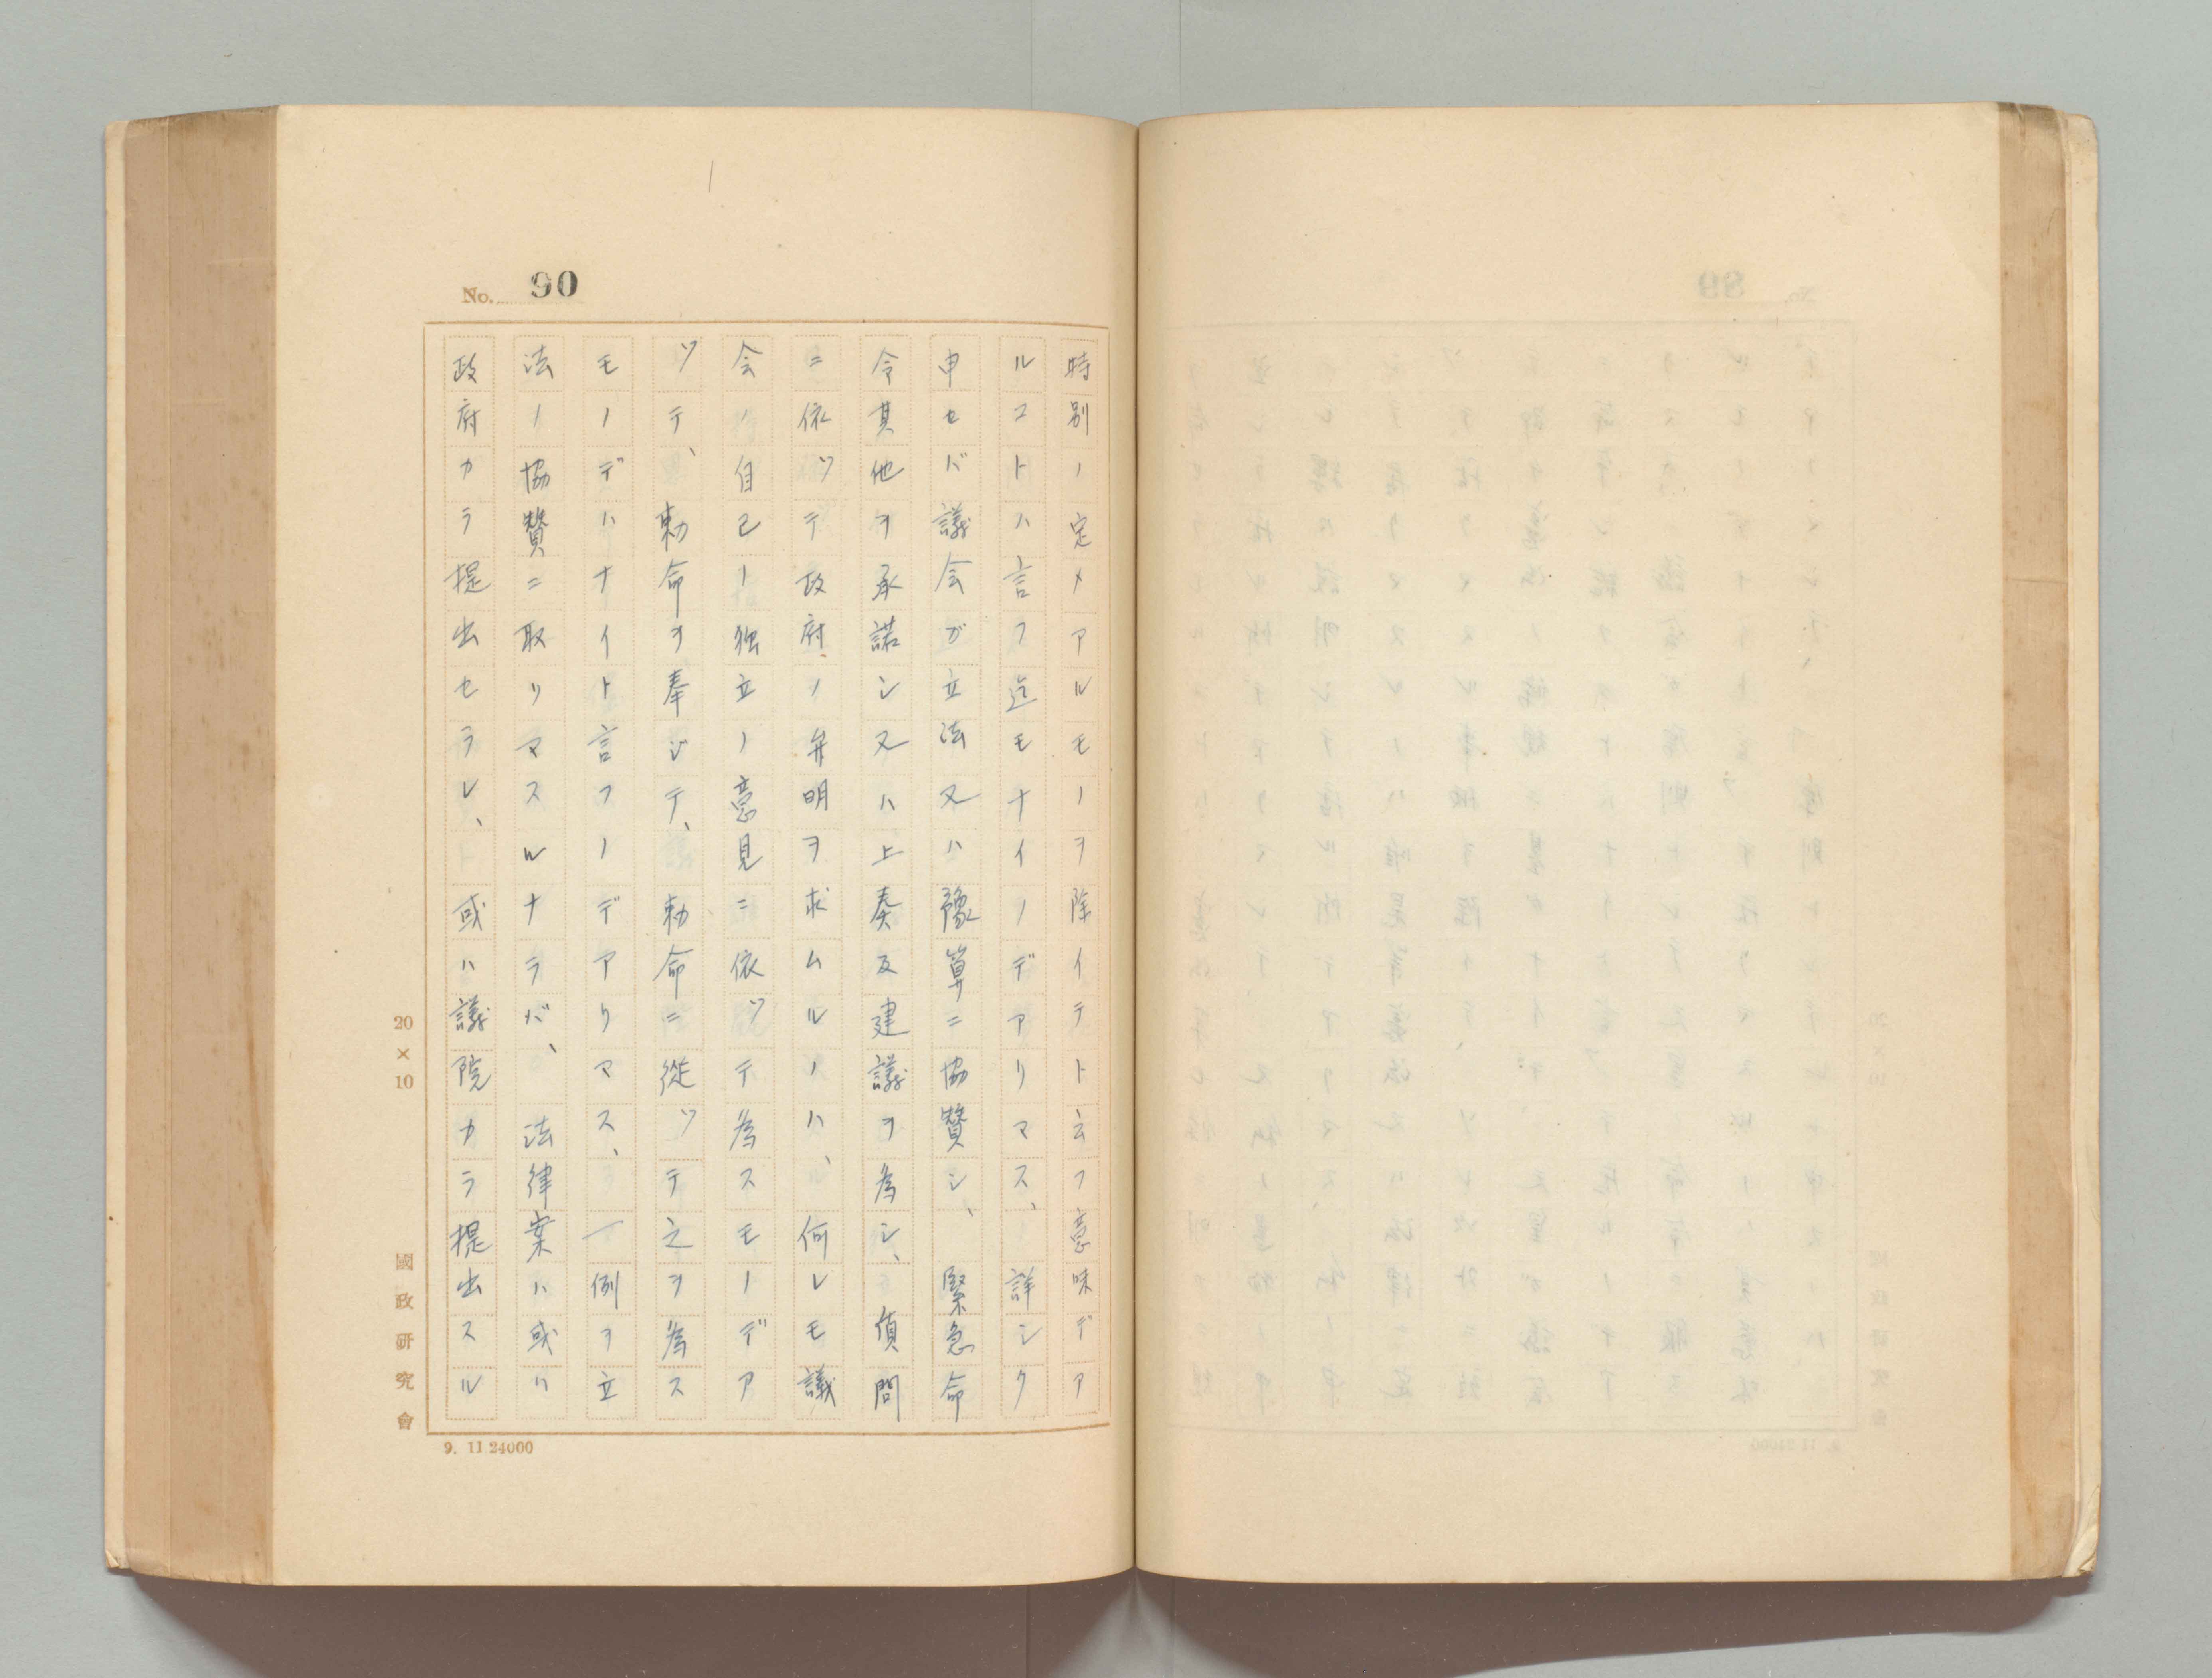 No. 90
時別ノ定メアルモノヲ除イテト云フ意味デア
ルコトハ言フ迄モナイノデアリマス、詳シク
申セバ議会ガ立法又ハ豫算ニ協賛シ、緊急命
令其他ヲ承諾シ又ハ上奏及建議ヲ為シ、偵問
ニ依ツテ政府ノ弁明ヲ求ムルノハ、何レモ議
会ノ自己ノ独立ノ意見ニ依ツテ為スモノデア
ツテ、勅命ヲ奉ジテ、勅命ニ從ツテ之ヲ為ス
モノデハナイト言フノデアリマス、一例ヲ立
法ノ協賛ニ取リマスルナラバ、法律案ハ或ハ
政府カラ提出セラレ、或ハ議院カラ提出スル
20×10
國政研究會
9. 11 24000